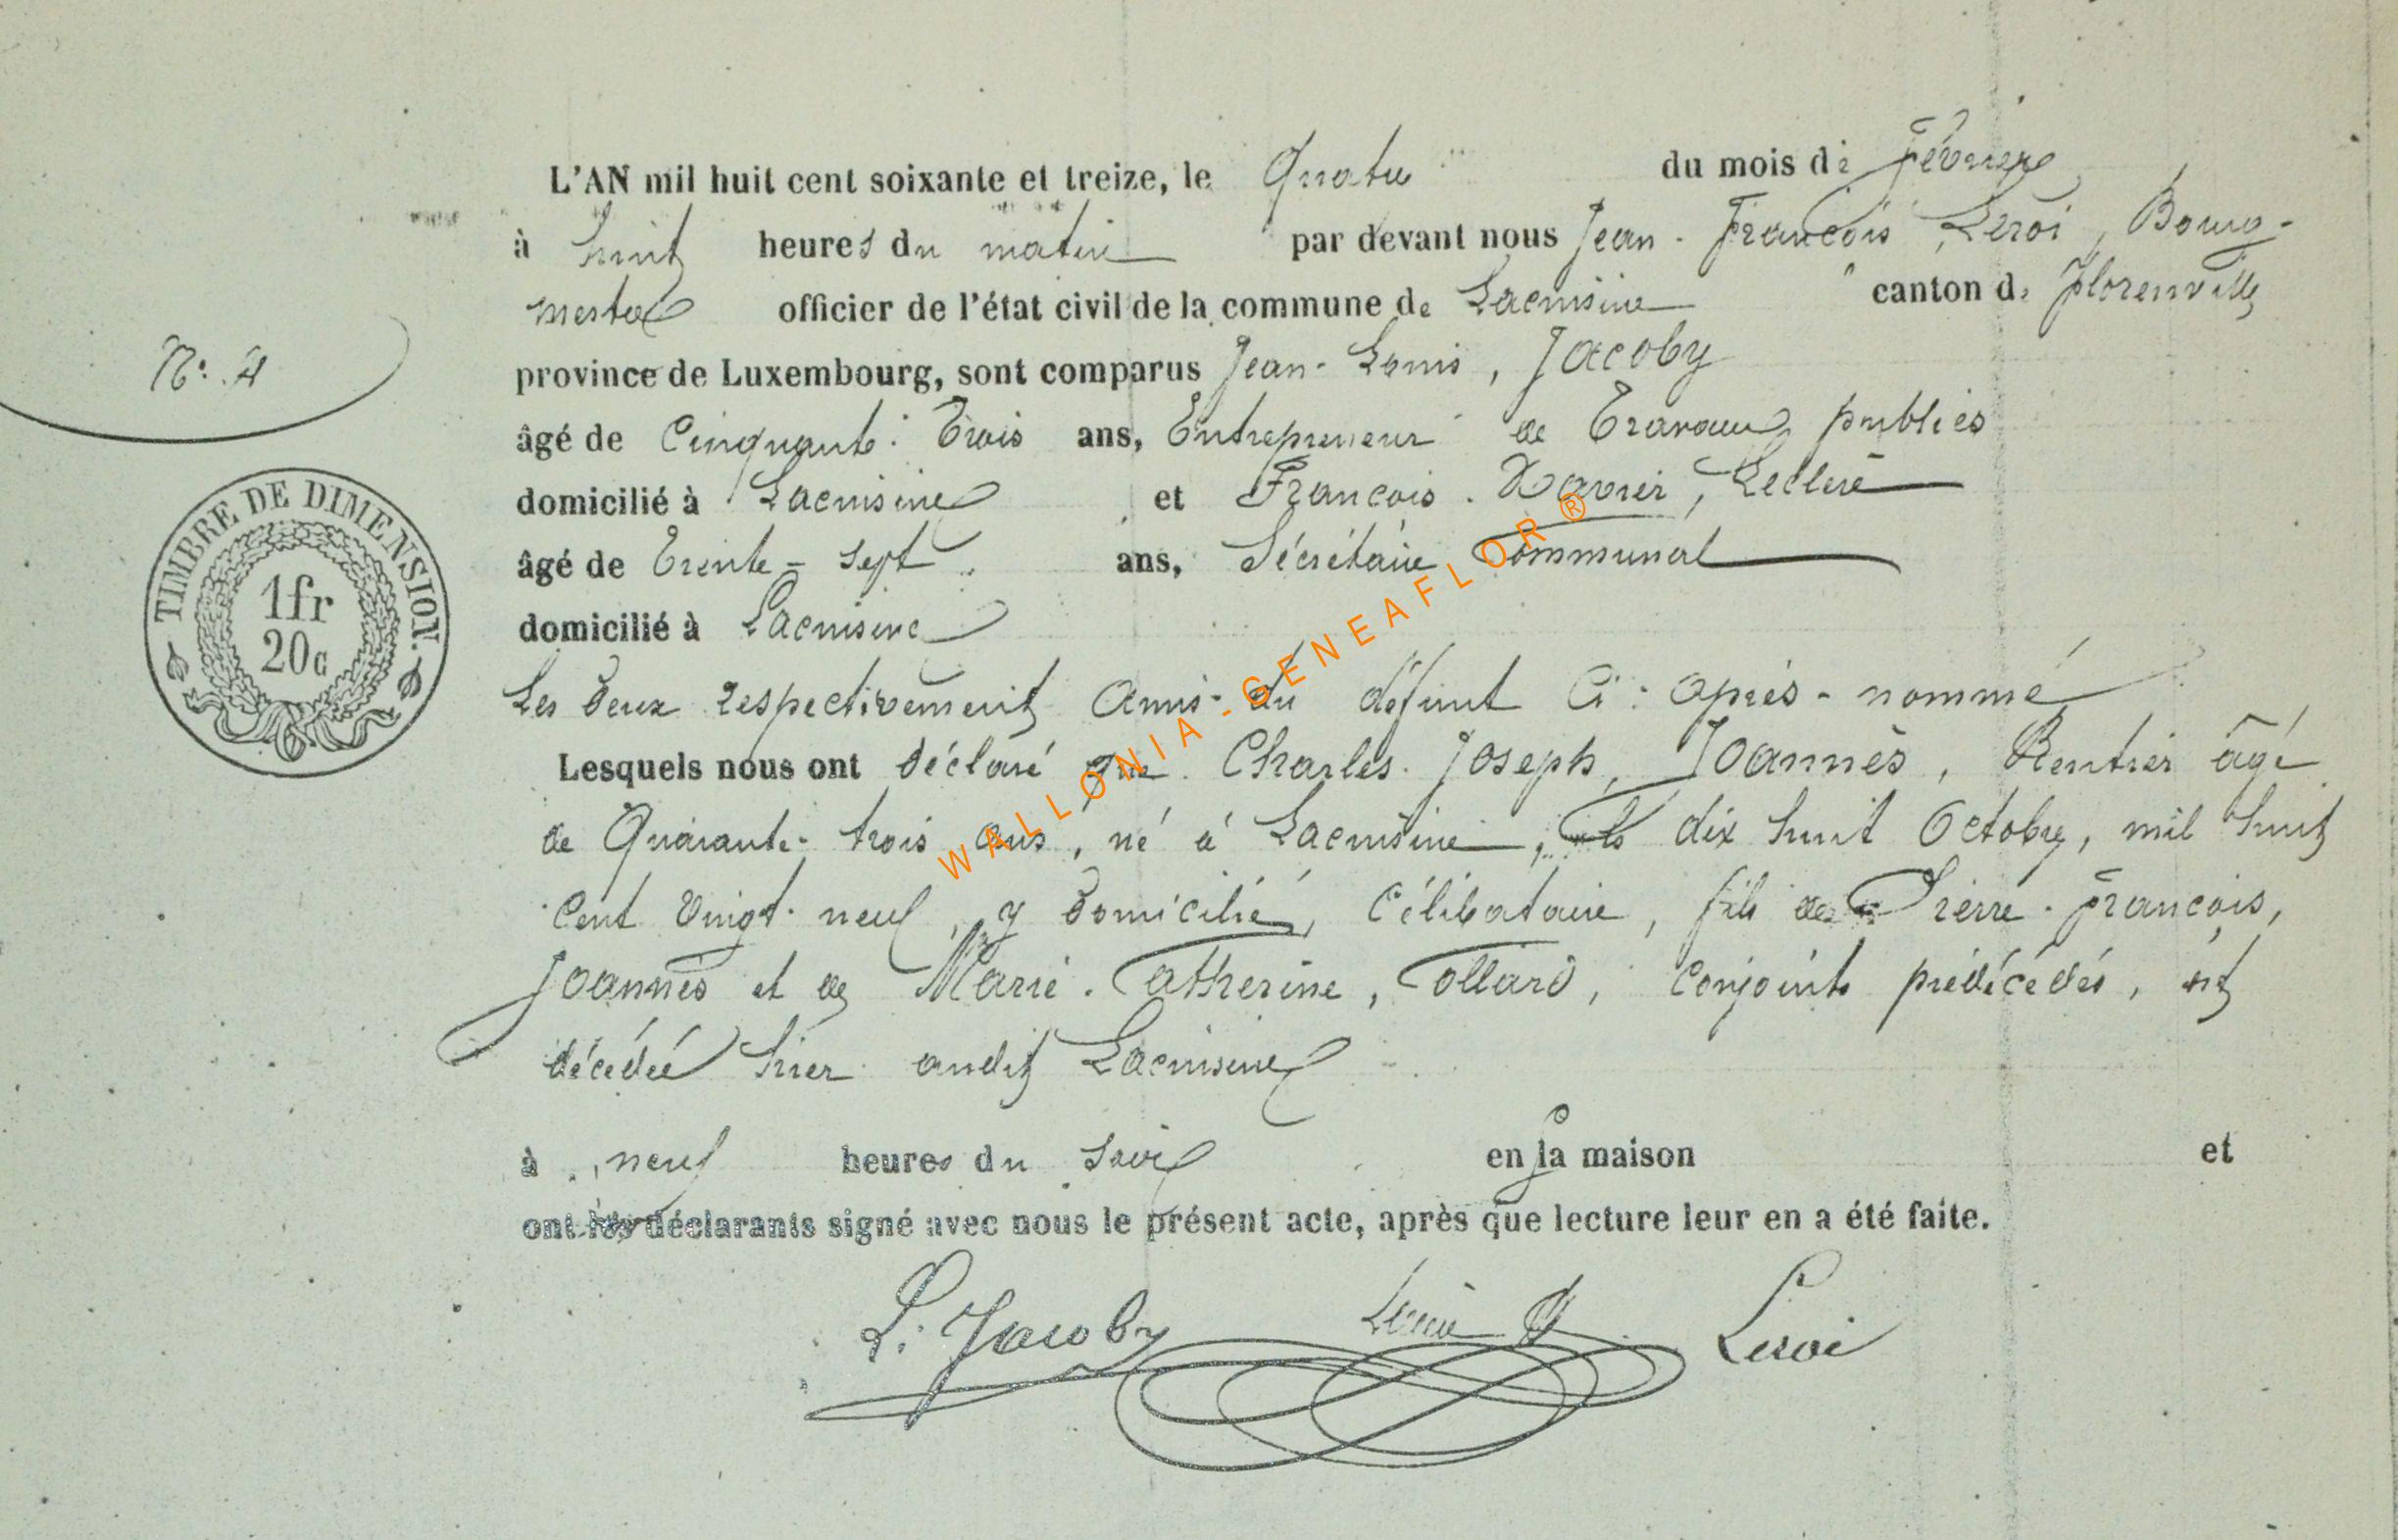 L'AN mil huit cent soixante et treize, le Quatre du mois de Février
à huit heures du matin par devant nous Jean-François Leroi, Bourg-
mestre officier de l'état civil de la commune de Lacuisine canton de Florenville
N°. 4
province de Luxembourg, sont comparus Jean-Louis, Jacoby
âgé de Cinquante-Trois ans, Entrepreneur de Travaux publics
domicilié à Lacuisine et François-Xavier, Leclère
âgé de Trente-Sept ans, Sécrétaire Communal
domicilié à Lacuisine
TIMBRE DE DIMENSION.
1fr
20c
Les deux respectivement Amis du défunt Ci-après-nommé
Lesquels nous ont déclaré que Charles-Joseph, Joannès, Rentier âgé
de Quarante-trois ans, né à Lacuisine, le dix huit Octobre, mil huit
Cent Vingt-neuf, y domicilié, Célibataire, fils de Pierre-François,
Joannès et de Marie-Catherine, Collard, Conjoints prédécédés, est
décédé hier audit Lacuisine
à neuf heures du soir en sa maison et
ont les déclarants signé avec nous le présent acte, après que lecture leur en a été faite.
L. Jacoby Leroi
WALLONIA-GENEAFLOR®